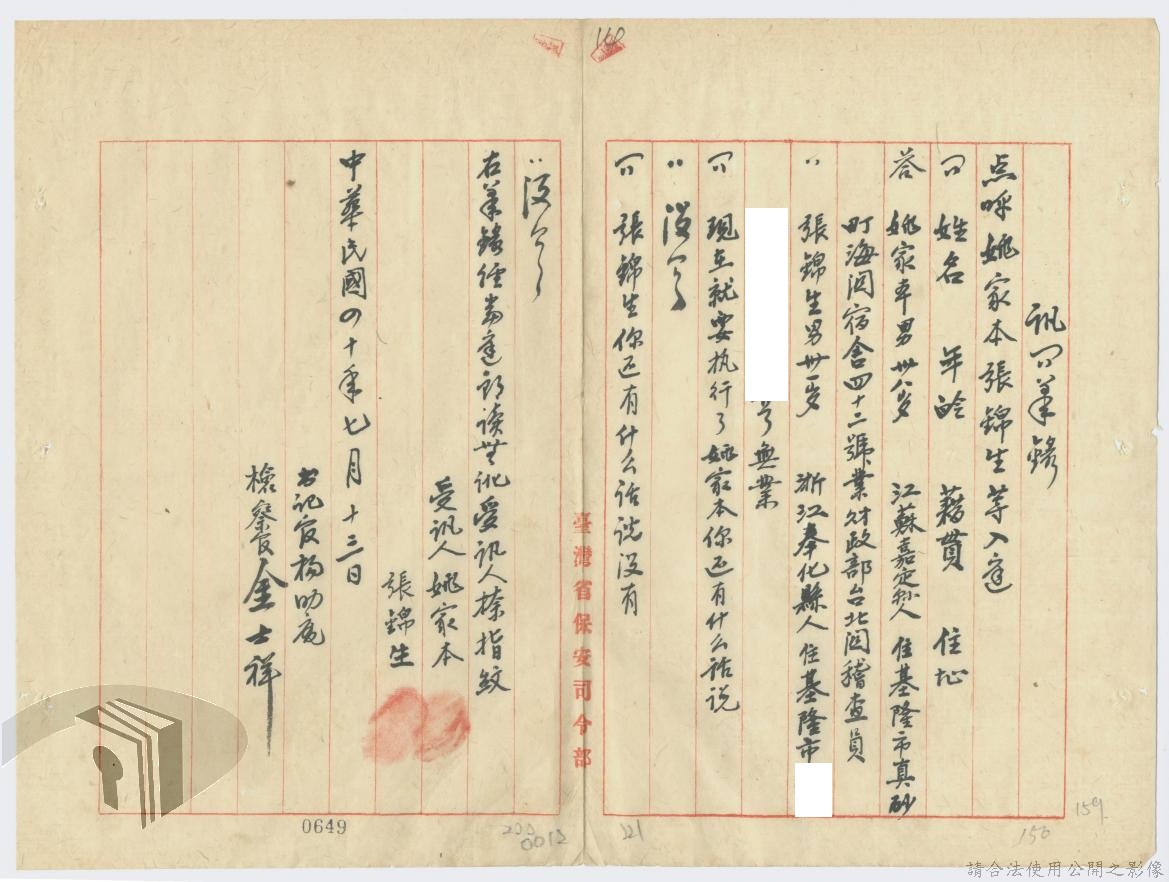 訊问筆錄
点呼姚家本張錦生等入庭
问 姓名 年齡 藉貫 住址
答 姚家本男卅八岁 江蘇嘉定縣人 住基隆市真砂
町海関宿舍四十二號業財政部台北関稽查員
〃 張錦生男卅一岁 浙江奉化縣人 住基隆市
号無業
问 现在就要执行了姚家本你还有什么話说
〃 没有
问 張錦生你还有什么話说没有
〃 没有
右筆錄經當庭朗读無訛受訊人捺指紋
受訊人 姚家本
張錦生
中華民國四十年七月十三日
書记官楊
檢察官金士祥
臺灣省保安司令部
0649
0012
121
159
150
160
請合法使用公開之影像